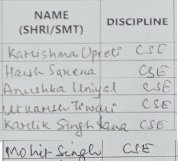 NAME (SHRI/SMT) DISCIPLINE
Karishma Upreti CSE
Harsh Saxena CSE
Anushka Uniyal CSE
Utkarsh Tiwari CSE
Kartik Singh Rana CSE
Mohit Singh CSE